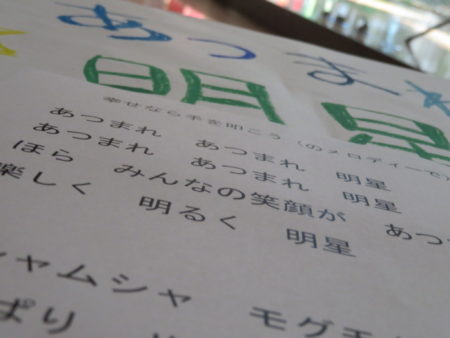 あつまれ
明星
幸せなら手を明こう（のメロディーで）
あつまれ　あつまれ　明星
あつまれ　あつまれ　明星
ほら　みんなの笑顔が　あつ
楽しく　明るく　明星
シャムシャ　モグモ
ぱり